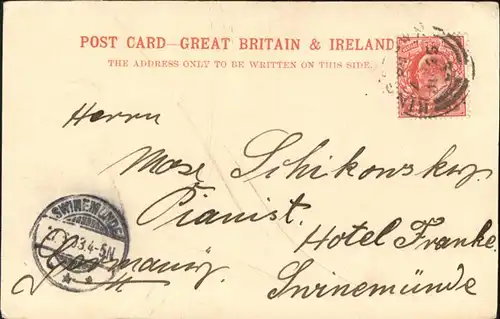 POST CARD—GREAT BRITAIN & IRELAND
THE ADDRESS ONLY TO BE WRITTEN ON THIS SIDE.
Herrn
Max Schikowsky
Pianist.
Hotel Franke
Swinemünde
Germany
SWINEMÜNDE
4-5N